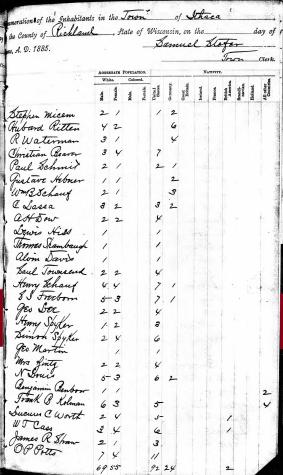 Enumeration of the Inhabitants in the Town of Ithaca
the County of Richland State of Wisconsin, on the day of
A. D. 1885. Samuel
Town Clerk.
AGGREGATE POPULATION. NATIVITY.
White. Colored.
Male. Female. Male. Female. United States. Germany. Great Britain. Ireland. France. British America. Scandinavia. Holland. All other Countries.
Stephen 2 1 1 2
Hubard Ritten 4 2 6
R Waterman 3 1 4
Christian 3 4 7
Paul Schmid 2 1 2 1
Gustave Hebner 1 1 2
Wm B Schaug 2 1 3
C Lassa 3 2 3 2
A H Dow 2 2 4
Lewis 1 1
Thomas Shambaugh 1 1
Alvin Davis 1 1
Townsend 2 2 4
Henry Schaug 4 4 7 1
Freeborn 5 3 7 1
Geo 2 2 4
Henry Spyker 1 2 3
Spyker 2 4 6
Geo Martin 1 1
Mrs 1 1
N 5 3 6 2
Benjamin 1 1 2
Frank B Kolman 6 3 5 4
C Worth 2 4 5 1
W T Cass 3 4 6 1
James R Shaw 2 1 3
O P Potts 7 4 11
69 55 92 24 2